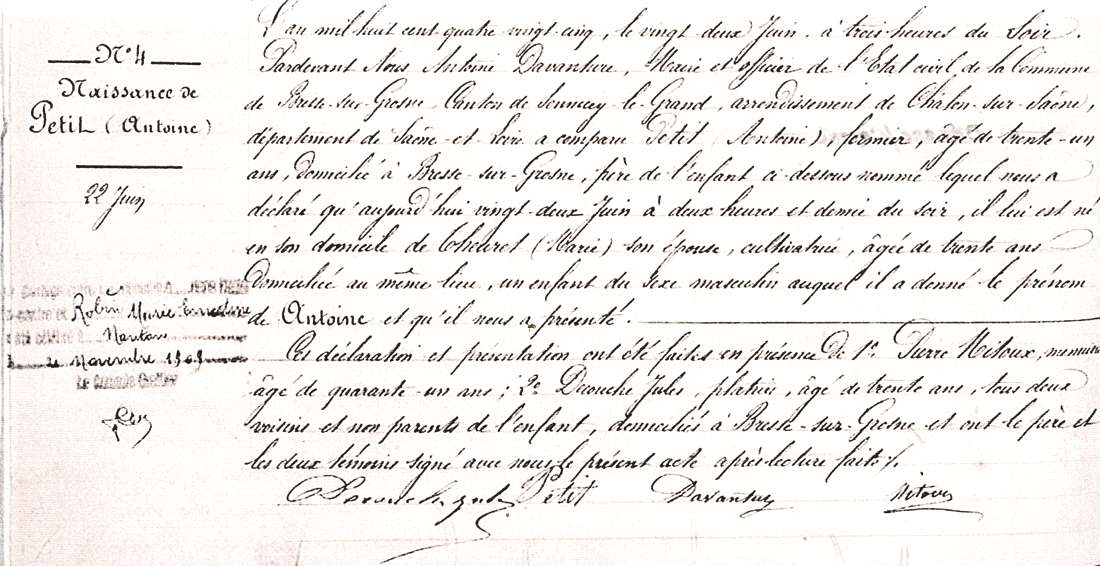 N° 4
Naissance de
Petit (Antoine)
22 Juin
Robin Marie Ernestine
Nanton
Novembre 1909
Le Commis Greffier
L'an mil huit cent quatre vingt cinq, le vingt deux Juin à trois heures du Soir.
Pardevant Nous Antoine Davanture, Maire et officier de l'Etat civil de la Commune
de Bresse-sur-Grosne, Canton de Sennecey-le-Grand, arrondissement de Chalon-sur-Saône,
département de Saône-et-Loire a comparu Petit (Antoine), fermier, âgé de trente-un
ans, domicilié à Bresse-sur-Grosne, père de l'enfant ci-dessous nommé lequel nous a
déclaré qu'aujourd'hui vingt-deux Juin à deux heures et demie du soir, il lui est né
en son domicile de Theuret (Marie) son épouse, cultivatrice, âgée de trente ans
Domiciliée au même lieu, un enfant du sexe masculin auquel il a donné le prénom
de Antoine et qu'il nous a présenté.
Ces déclaration et présentation ont été faites en présence de 1° Pierre Nitoux, menuisier
âgé de quarante-un ans; 2° Derouche Jules, platrier, âgé de trente ans, tous deux
voisins et non parents de l'enfant, domiciliés à Bresse-sur-Grosne et ont le père et
les deux témoins signé avec nous le présent acte après lecture faite /.
Petit Davanture Nitoux